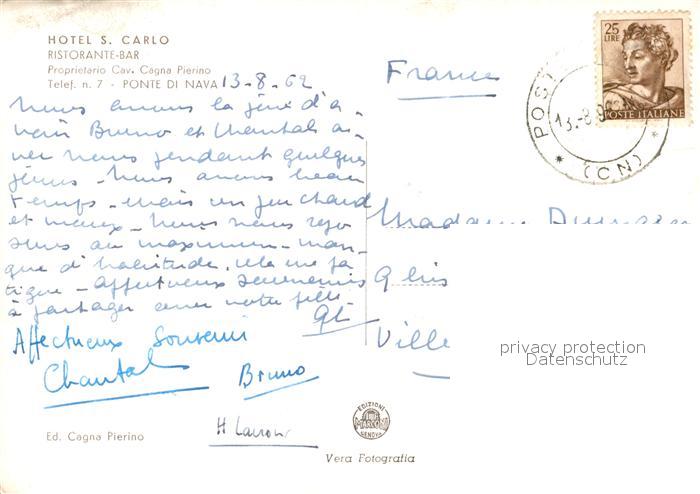 HOTEL S. CARLO
RISTORANTE-BAR
Proprietario Cav. Cagna Pierino
Telef. n. 7 - PONTE DI NAVA
13-8-62
Nous avons la joie d'a-
voir Bruno et Chantal a-
vec nous pendant quelques
jours - Nous avons beau
temps - mais un peu chaud
et mieux - Nous nous repo
sons au maximum - man-
que d'habitude. Cela me fa
tigue - Affectueux souvenirs
à partager avec votre
Affectueux Souvenir
Chantal
Bruno
Ed. Cagna Pierino
France
25
LIRE
POSTE ITALIANE
POST
13.-8.
(CN)
Madame
Ville
privacy protection
Datenschutz
EDIZIONI
MARCONI
GENOVA
Vera Fotografia